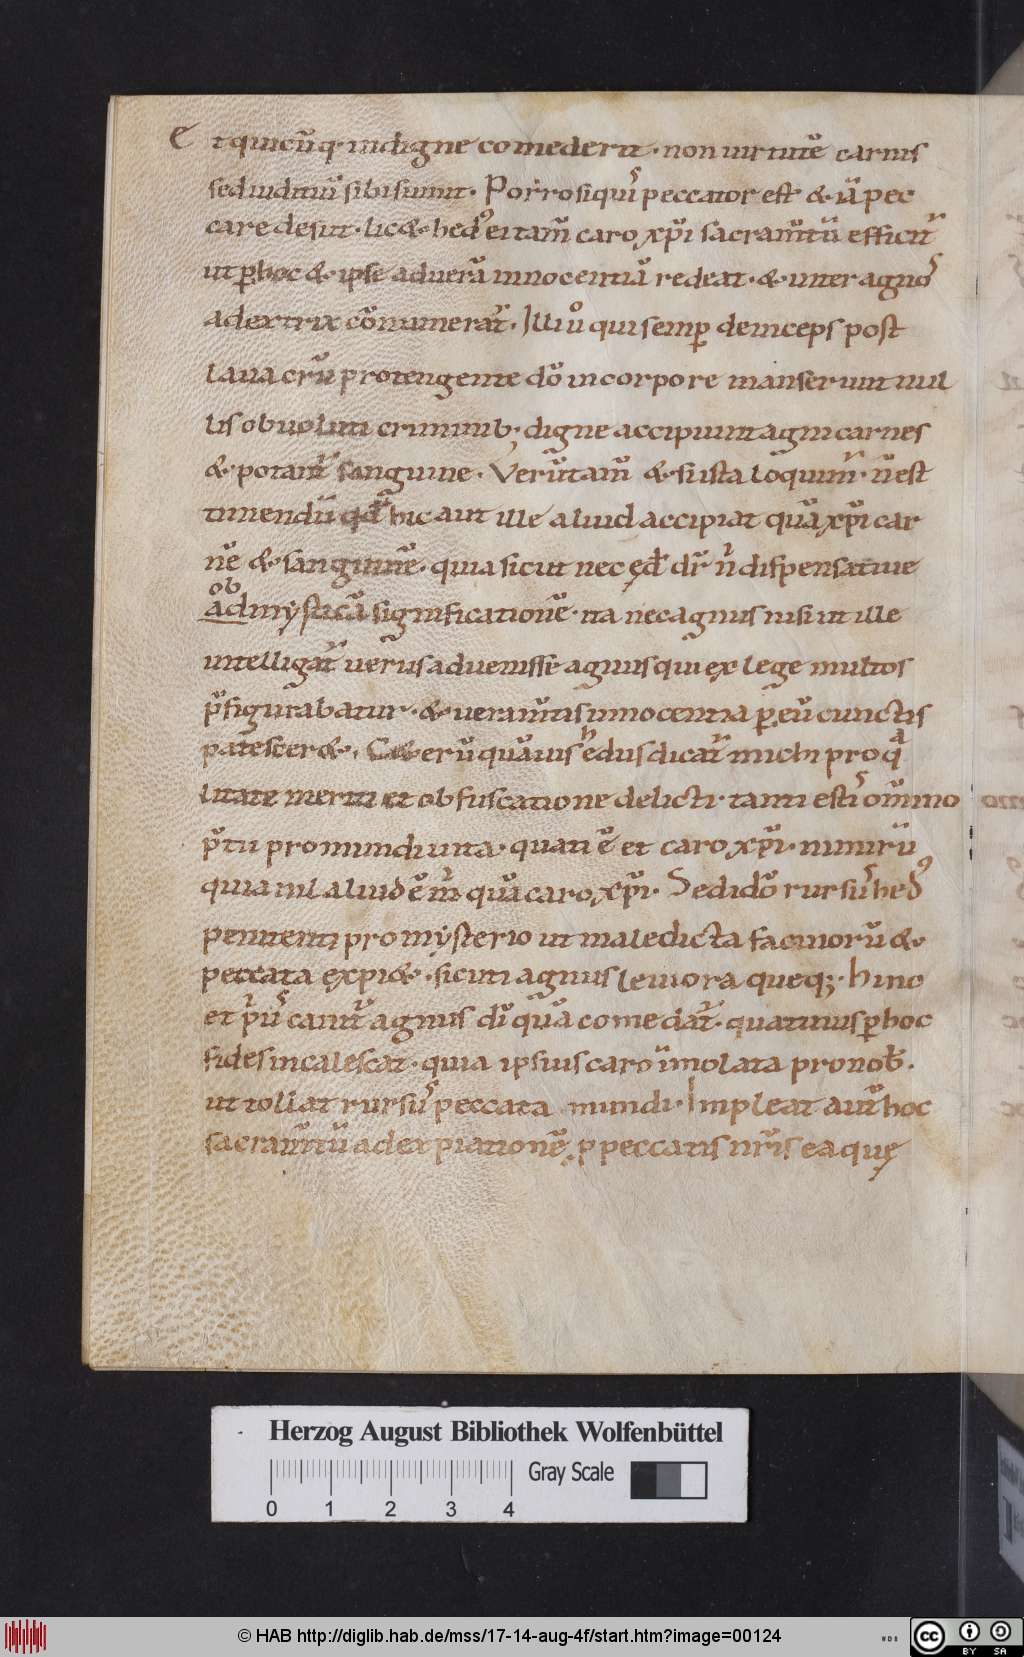 Et quicūq· indigne comederit · non uirtutē carnis
sed iuditiū sibi sumit · Porro siquis̄ peccator est & iā pec
care desiit · lic& hed᷒ ei tam̄ caro xp̄i sacram̄tū efficit᷑
ut p̲ hoc & ipse ad uerā innocentiā redeat · & inter agnos
a dextrix cōnumerat᷑ · Illi uͦ qui semp̲ deinceps post
lauacrū protengente dō in corpore manserunt nul
lis obuoluti criminib; digne accipiunt agni carnes
& potant᷑ sanguine · Verūtam̄ & si ista loquim̄ · n̄ est
timendū qd̄ hic aut ille aliud accipiat quā xp̄i car
nē & sanguinē · quia sicut nec ęd̄ dr̄ n̄ dispensatiue
ob
ad mysticā significationē · ita nec agnus nisi ut ille
intelligat᷑ uerus aduenisse agnus qui ex lege multos
p̄figurabatur · & uera m̄tis innocentia p̲ eū cunctis
patescer& · Cęterū quāuis hędus dicat᷑ michi pro qa
litate meriti et obfuscatione delicti · tanti est is om̄ino
p̄tii pro mundi uita · quati ē et caro xp̄i · nimirū
quia nil aliud ē in quā caro xp̄i · Sed idō rursū hed᷒
penitenti pro mysterio ut maledicta facinorū &
peccata expi& · sicuti agnus leuiora queq; · Hinc
et p̄us canit᷑ agnus dī quā comedat᷑ · quatinus p̲ hoc
fides incalescat · quia ipsius caro īmolata pro nob̄ ·
ut tollat rursū peccata mundi · Impleat aut̄ hoc
sacram̄tū ad expiationē p̲ peccatis nr̄is ea quę
Herzog August Bibliothek Wolfenbüttel
Gray Scale
0 1 2 3 4
© HAB http://diglib.hab.de/mss/17-14-aug-4f/start.htm?image=00124
WDB
cc BY SA